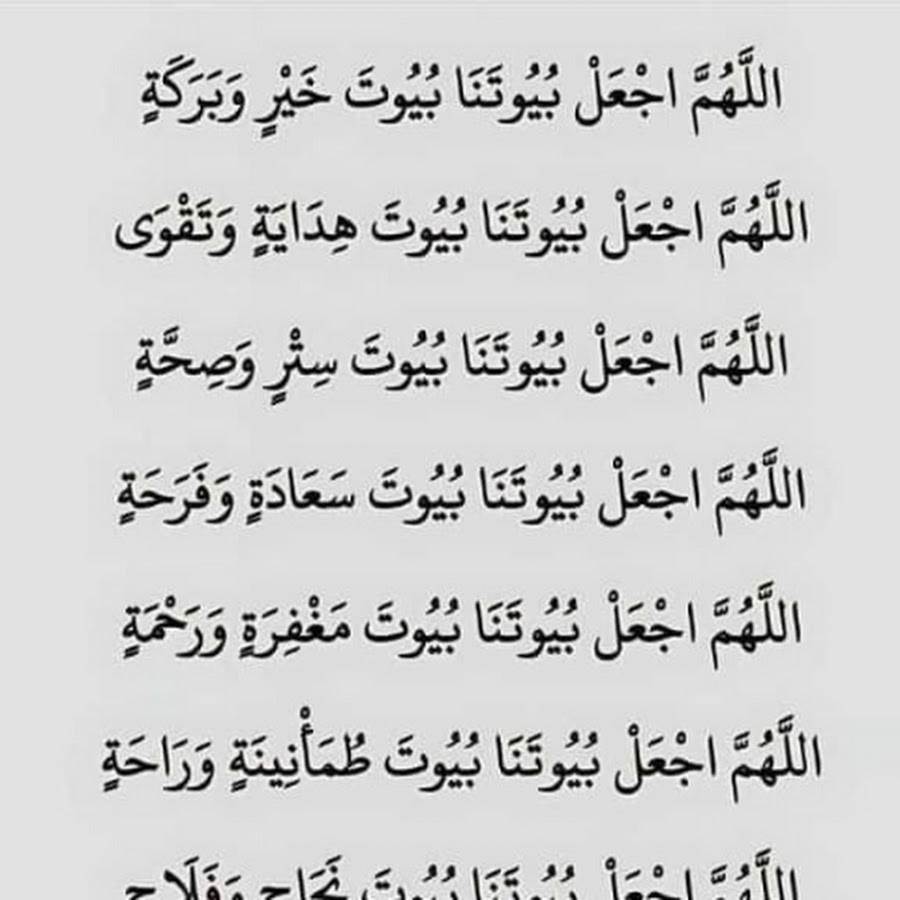 اللَّهُمَّ اجْعَلْ بُيُوتَنَا بُيُوتَ خَيْرٍ وَبَرَكَةٍ
اللَّهُمَّ اجْعَلْ بُيُوتَنَا بُيُوتَ هِدَايَةٍ وَتَقْوَى
اللَّهُمَّ اجْعَلْ بُيُوتَنَا بُيُوتَ سِتْرٍ وَصِحَّةٍ
اللَّهُمَّ اجْعَلْ بُيُوتَنَا بُيُوتَ سَعَادَةٍ وَفَرَحَةٍ
اللَّهُمَّ اجْعَلْ بُيُوتَنَا بُيُوتَ مَغْفِرَةٍ وَرَحْمَةٍ
اللَّهُمَّ اجْعَلْ بُيُوتَنَا بُيُوتَ طُمَأْنِينَةٍ وَرَاحَةٍ
اللَّهُمَّ اجْعَلْ بُيُوتَنَا بُيُوتَ نَجَاحٍ وَفَلَاحٍ